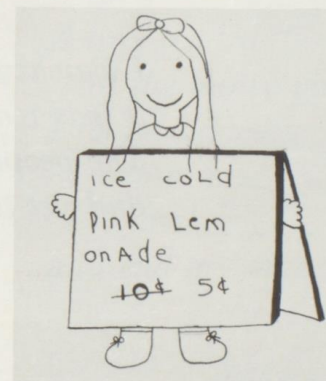 ice coLd
PinK Lem
onAde
10¢ 5¢